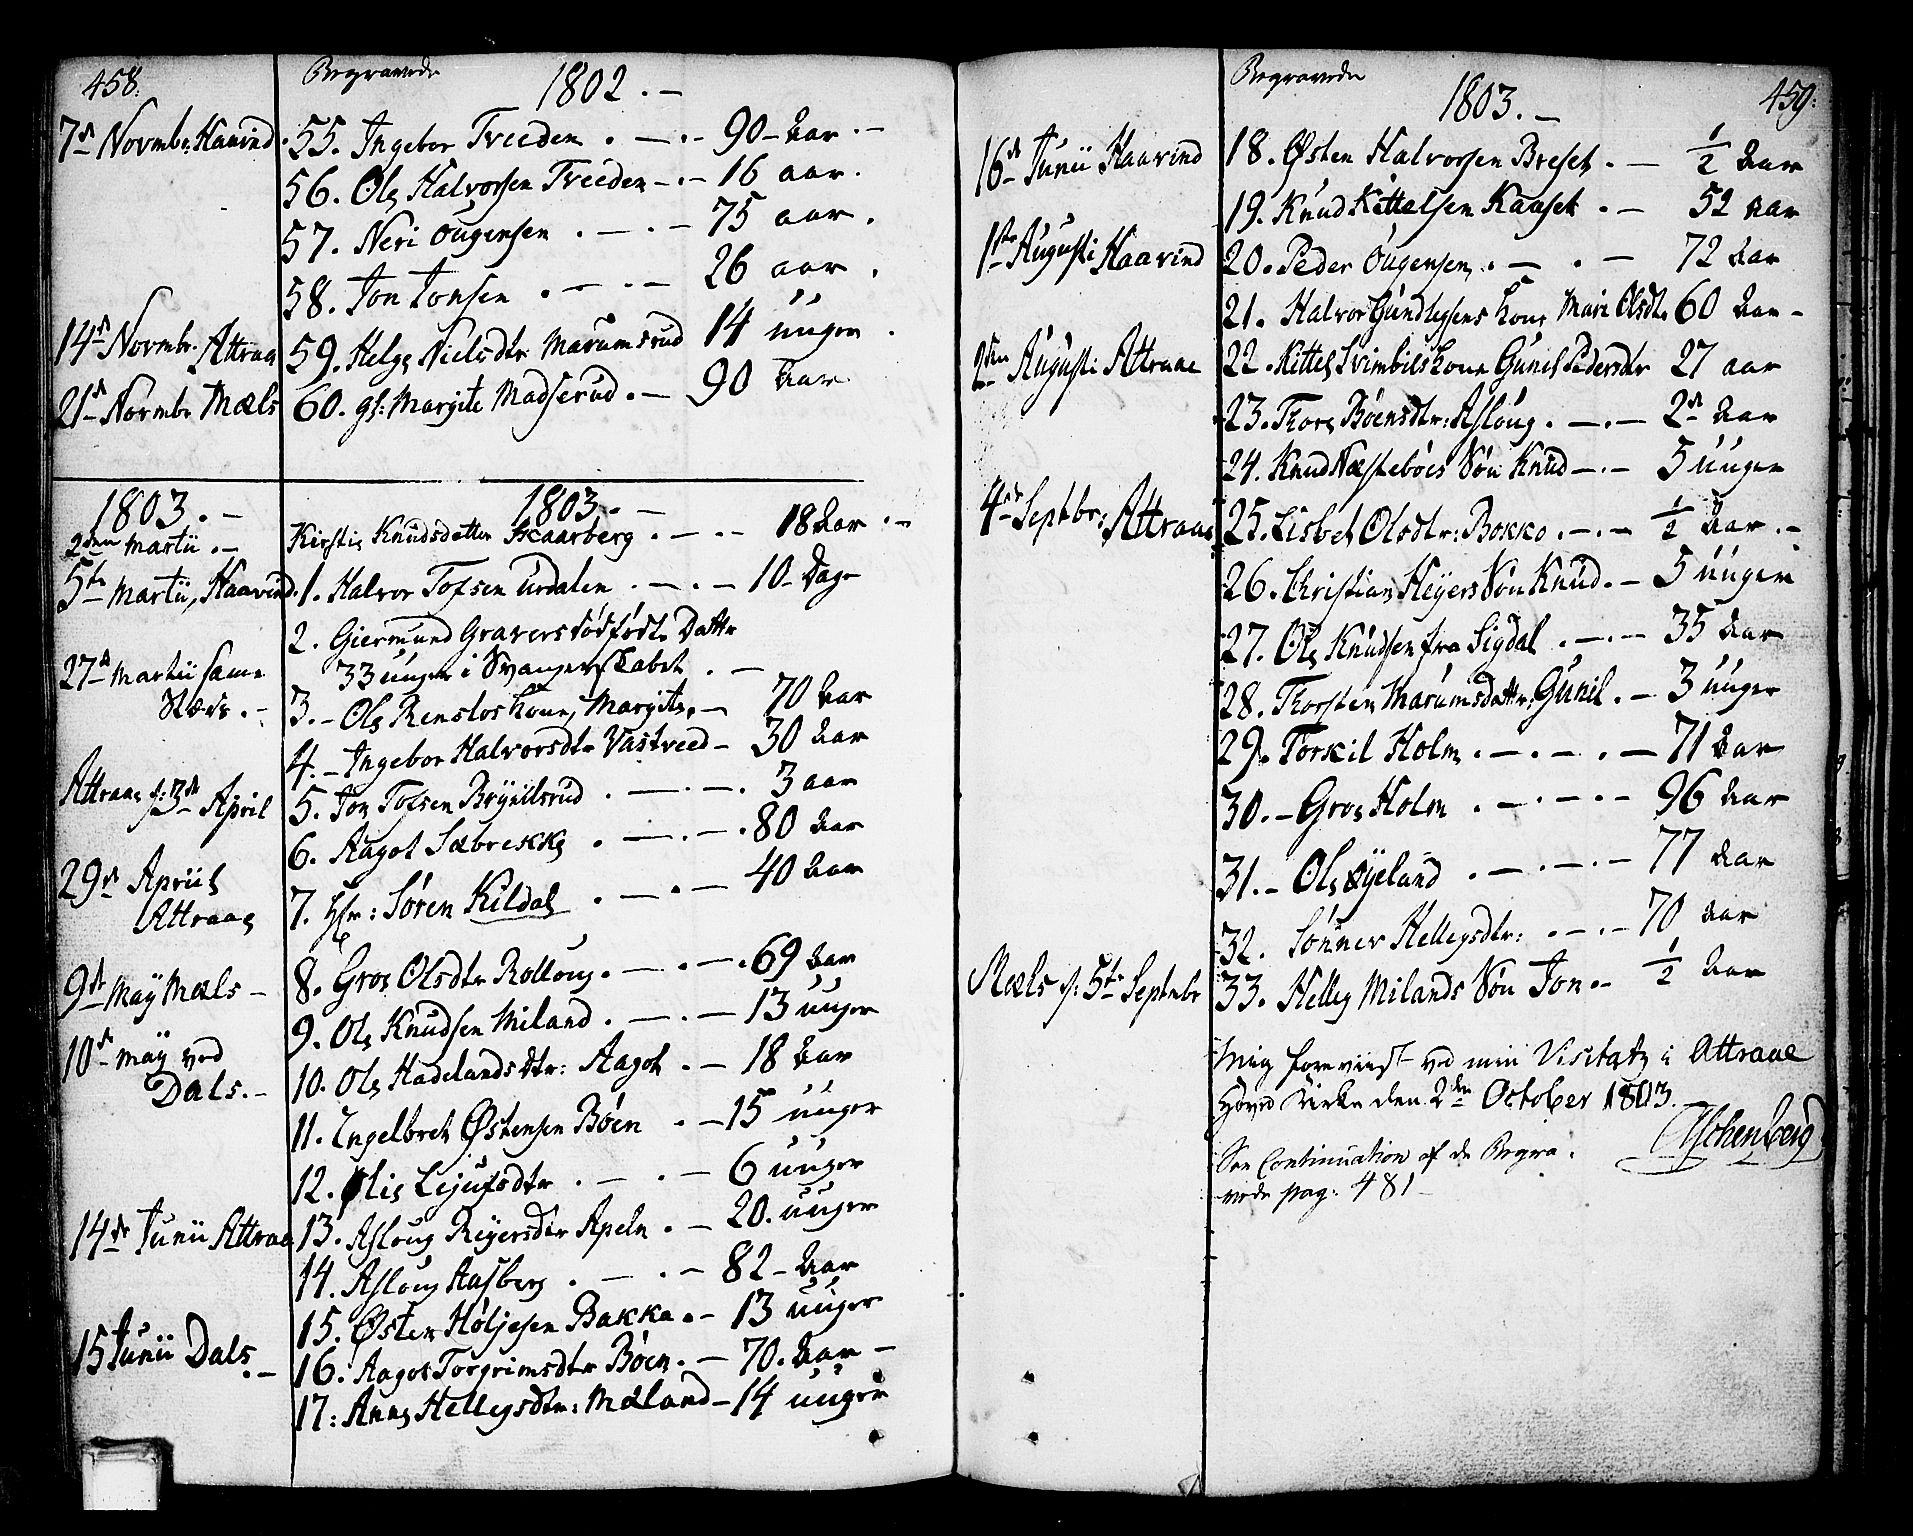 458.
Begravede
1802.
7de Novmbr. Haavind.
55. Ingebor Tveeden 90 aar
56. Ole Halvorsen Tveeden 16 aar.
57. Neri Ougensen 75 aar.
58. Jon Jonsen 26 aar.
14de Novmbr. Attraa
59. Helge Nielsdtr Marumsrud 14 uuger.
21de Novmbr Mæls
60. gl: Margite Madserud 90 aar
1803.
1803.
2den Martii.
Kirstie Knudsdatter Skaarberg 18 aar.
5te Martii, Haavind.
1. Halvor Tofsen Urdalen 10 Dage
2. Giermund Gravers dødfødte Dattr
33 uuger i Svangerskabet.
27de Martii samme
Stæds.
3. Ole Rensloskone, Margite 70 aar
4. Ingebor Halvorsdtr Vastveed 30 aar
Attraae d: 3de April
5. Jon Tofsen Brynilsrud 3 aar
6. Aagot Sæbrekke 80 aar
29de Apriil
Attraae
7. Hr: Søren Kildal 40 aar
9de May Mæls
8. Groe Olsdtr Rolloug 69 aar
9. Ole Knudsen Miland 13 uuger
10de May ved
Dals.
10. Ole Hadelandsdtr: Aagot 18 aar
11. Engelbret Østensen Böen 15 uuger
12. Olis Lejufsdtr 6 uuger
14de Junii Attraa
13. Asloug Rejersdtr Apeln 20. uuger
14. Asloug Aasberg 82 aar
15. Østen Høljesen Bakka 13 uuger
15 Junii Dals.
16. Aagot Torgrimsdtr Böen 70. aar
17: Anne Hellegsdtr: Mæland 14 uuger
Begravede
1803.
459.
16de Junii Haavind
18. Østen Halvorsen Breset 1/2 aar
19. Knud Kittelsen Kaaset 52 aar
1ste Augusti Haavind
20. Peder Ougensen 72 aar
21. Halvor Gundlegsens kone Mari Olsdtr 60 aar
2den Augusti Attraae
22. Kittel Svimbils kone Gunil Pedersdtr 27 aar
23. Thore Böensdtr: Asloug 2de aar
24. Knud Næsteböes Søn Knud 5 uuger
4de Septbr: Attraae
25. Lisbet Olsdtr: Bokko 1/2 aar.
26. Christian Heyers Søn Knud 5 uuger
27. Ole Knudsen fra Sigdal 35 aar
28. Thorsten Marumsdattr Gunil 3 uuger
29. Torkil Holm 71 aar
30. Groe Holm 96 aar
31. Ole Øyeland 77 aar
32. Sønnev Hellegsdtr: 70 aar
Mæls d: 5te Septmbr
33. Helleg Milands Søn Jon 1/2 aar
Mig foreviist ved min Visitatz i Attraae
Hoved Kirke den 2den October 1803.
See Continuation af de Begra-
vede pag: 481